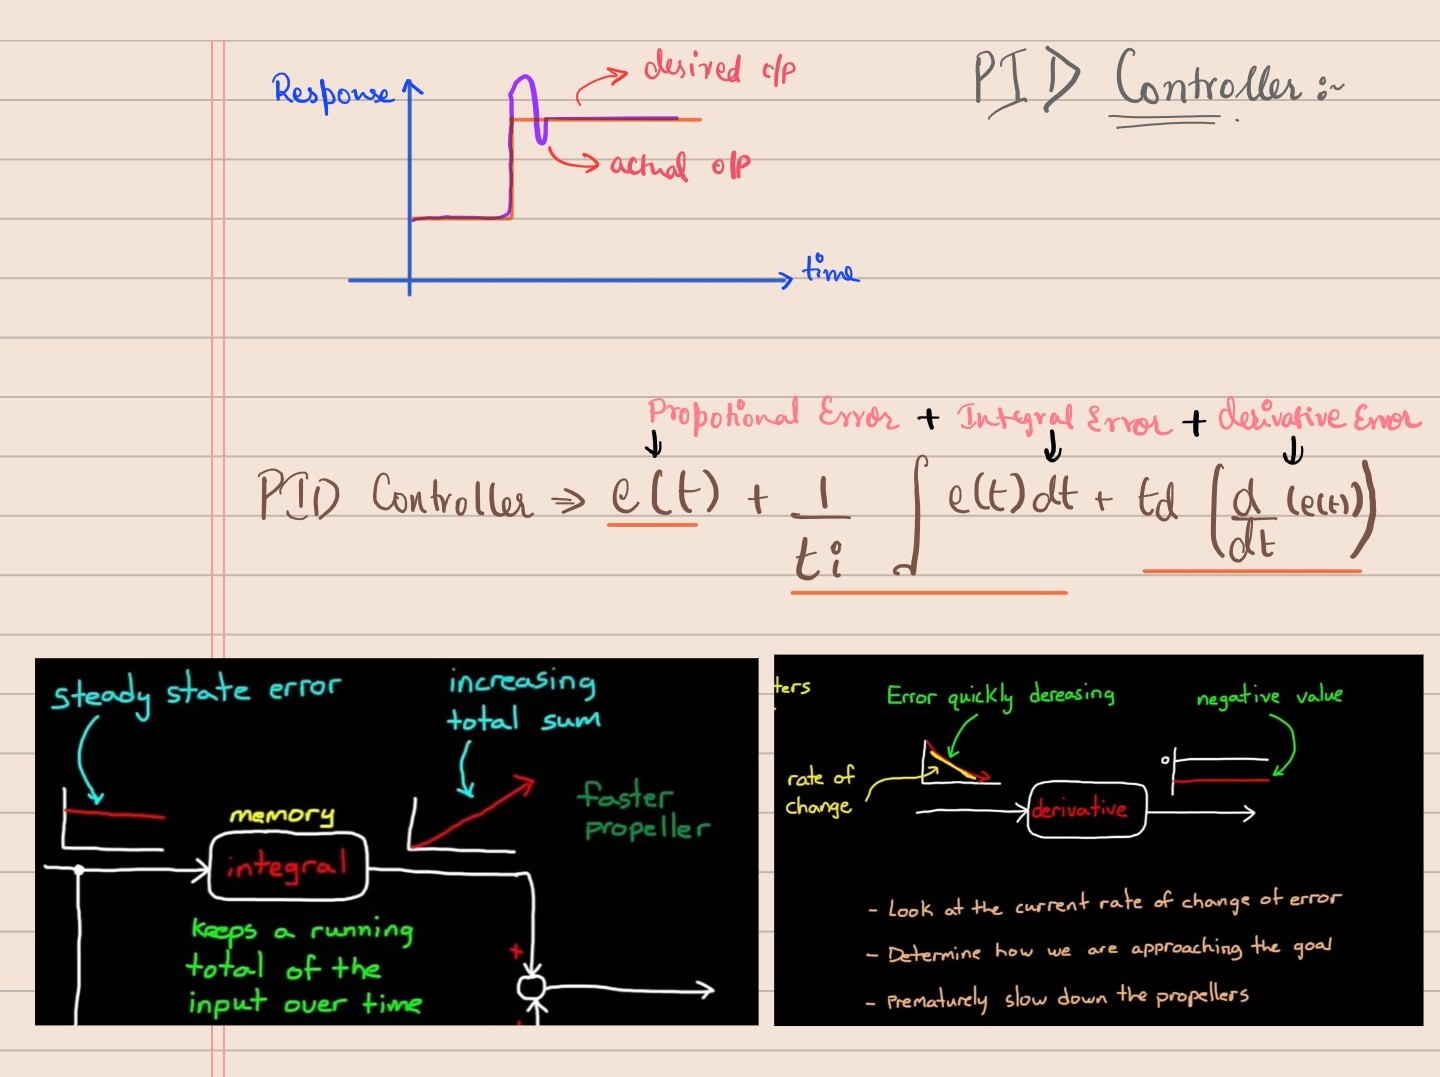 PID Controller :~
Response
desired o/p
actual o/p
time
Propotional Error + Integral Error + derivative Error
PID Controller ⇒ e(t) + 1/ti ∫ e(t) dt + td (d/dt (e(t)))
steady state error
increasing
total sum
memory
integral
faster
propeller
keeps a running
total of the
input over time
+
ters
Error quickly dereasing
negative value
rate of
change
0
derivative
- Look at the current rate of change of error
- Determine how we are approaching the goal
- Prematurely slow down the propellers